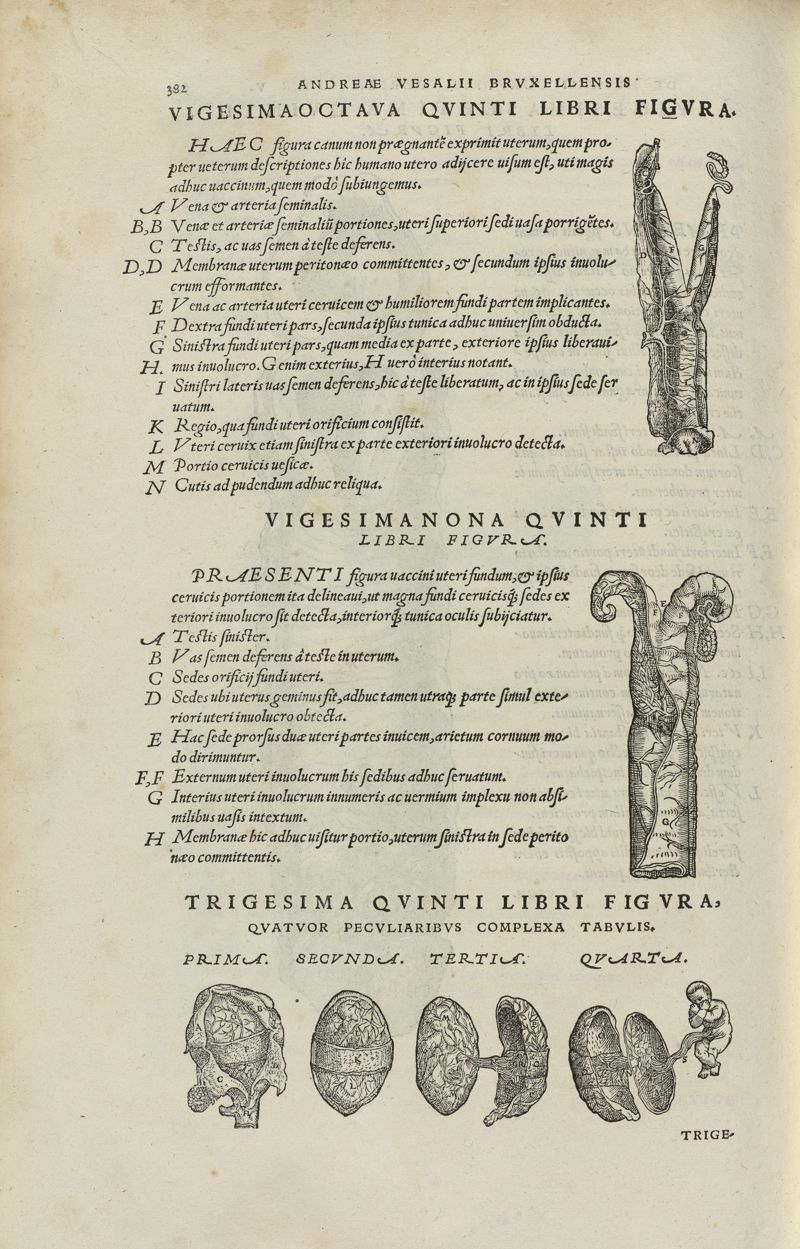 382
ANDREAE VESALII BRVXELLENSIS
VIGESIMAOCTAVA QVINTI LIBRI FIGVRA.
HAEC figura canum non prægnantẽ exprimit uterum, quem pro-
pter ueterum descriptiones hic humano utero adijcere uisum est, uti magis
adhuc uaccinum, quem modò subiungemus.
A Vena & arteria seminalis.
B, B Venæ et arteriæ seminaliũ portiones, uteri superiori sedi uasa porrigẽtes.
C Testis, ac uas semen à teste deferens.
D, D Membranæ uterum peritonæo committentes, & secundum ipsius inuolu-
crum efformantes.
E Vena ac arteria uteri ceruicem & humiliorem fundi partem implicantes.
F Dextra fundi uteri pars, secunda ipsius tunica adhuc uniuersim obducta.
G Sinistra fundi uteri pars, quam media ex parte, exteriore ipsius liberaui-
H. mus inuolucro. G enim exterius, H uerò interius notant.
I Sinistri lateris uas semen deferens, hic à teste liberatum, ac in ipsius sede ser
uatum.
K Regio, qua fundi uteri orificium consistit.
L Vteri ceruix etiam sinistra ex parte exteriori inuolucro detecta.
M Portio ceruicis uesicæ.
N Cutis ad pudendum adhuc reliqua.
VIGESIMANONA QVINTI
LIBRI FIGVRA.
PRAESENTI figura uaccini uteri fundum, & ipsius
ceruicis portionem ita delineaui, ut magna fundi ceruicisq́; sedes ex
teriori inuolucro sit detecta, interiorq́; tunica oculis subijciatur.
A Testis sinister.
B Vas semen deferens à teste in uterum.
C Sedes orificij fundi uteri.
D Sedes ubi uterus geminus fit, adhuc tamen utraq; parte simul exte-
riori uteri inuolucro obtecta.
E Hac sede prorsus duæ uteri partes inuicem, arietum cornuum mo-
do dirimuntur.
F, F Externum uteri inuolucrum his sedibus adhuc seruatum.
G Interius uteri inuolucrum innumeris ac uermium implexu non absi-
milibus uasis intextum.
H Membranæ hic adhuc uisitur portio, uterum sinistra in sede perito
næo committentis.
TRIGESIMA QVINTI LIBRI FIGVRA,
QVATVOR PECVLIARIBVS COMPLEXA TABVLIS.
PRIMA. SECVNDA. TERTIA. QVARTA.
TRIGE-